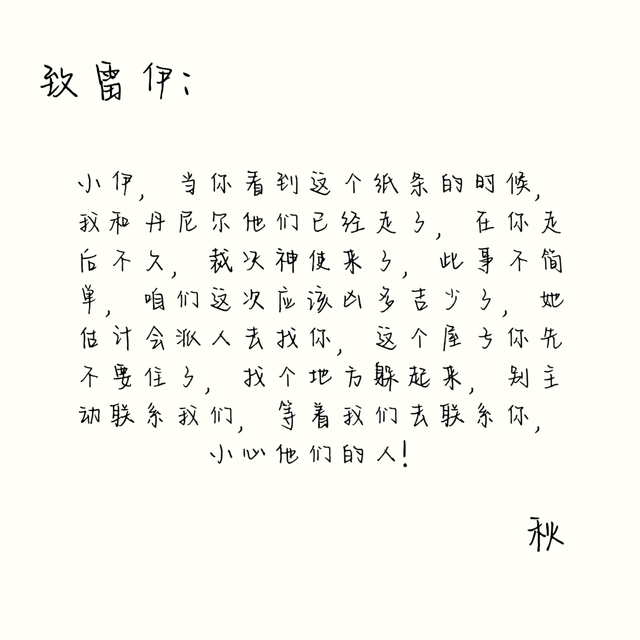 致雷伊：
小伊，当你看到这个纸条的时候，
我和丹尼尔他们已经走了，在你走
后不久，裁决神使来了，此事不简
单，咱们这次应该凶多吉少了，她
估计会派人去找你，这个屋子你先
不要住了，找个地方躲起来，别主
动联系我们，等着我们去联系你，
小心他们的人！
秋